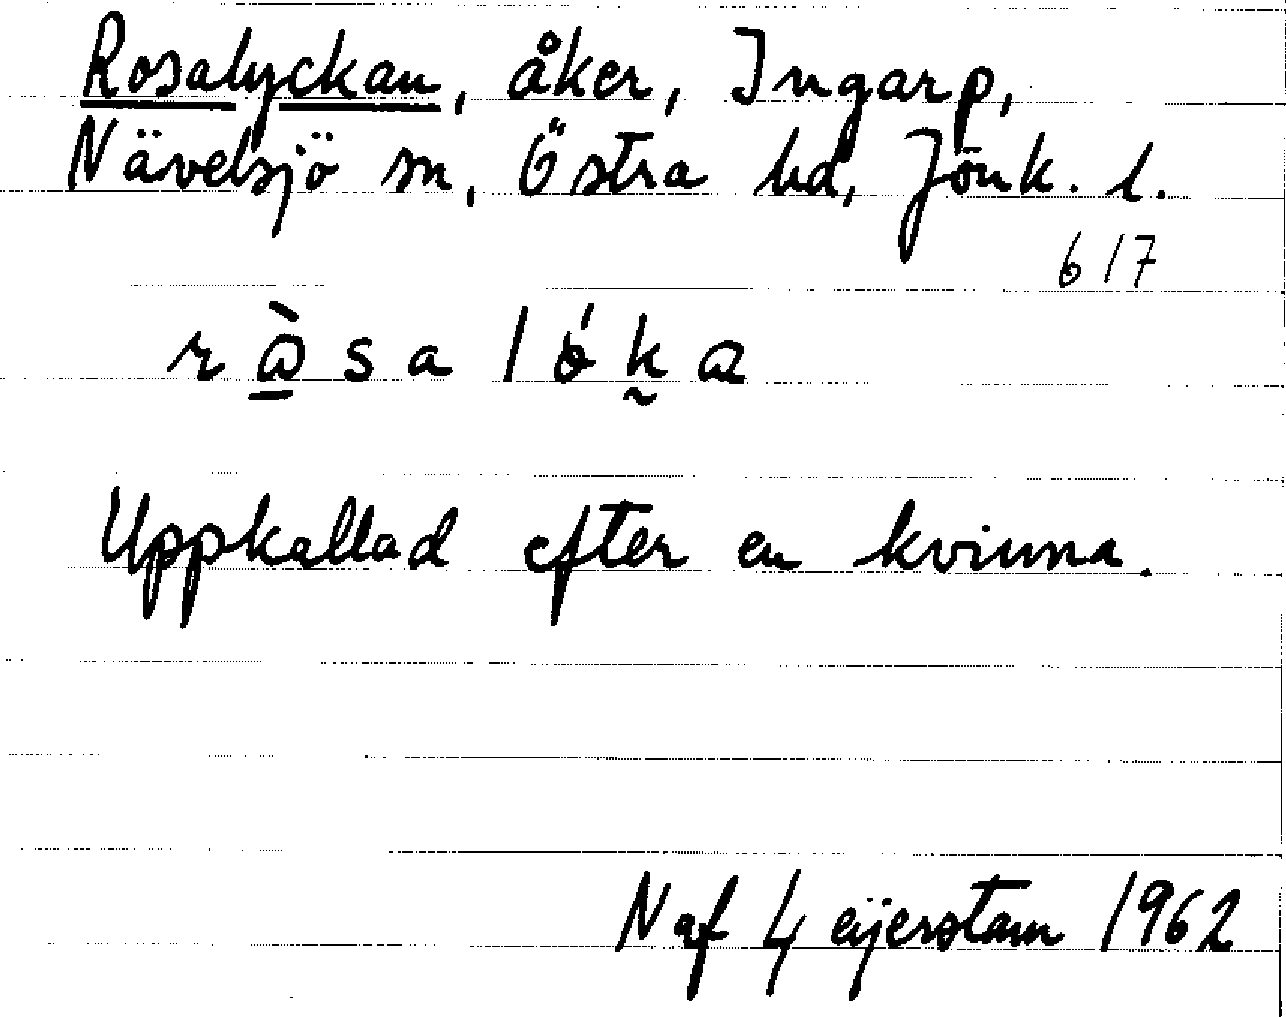 Rosalyckan, åker, Ingarp,
Nävelsjö sn, Östra hd, Jönk. l.
617
r ꙍ̲̀ s a l ǿ k̰ ɑ
Uppkallad efter en kvinna.
N af Geijerstam 1962